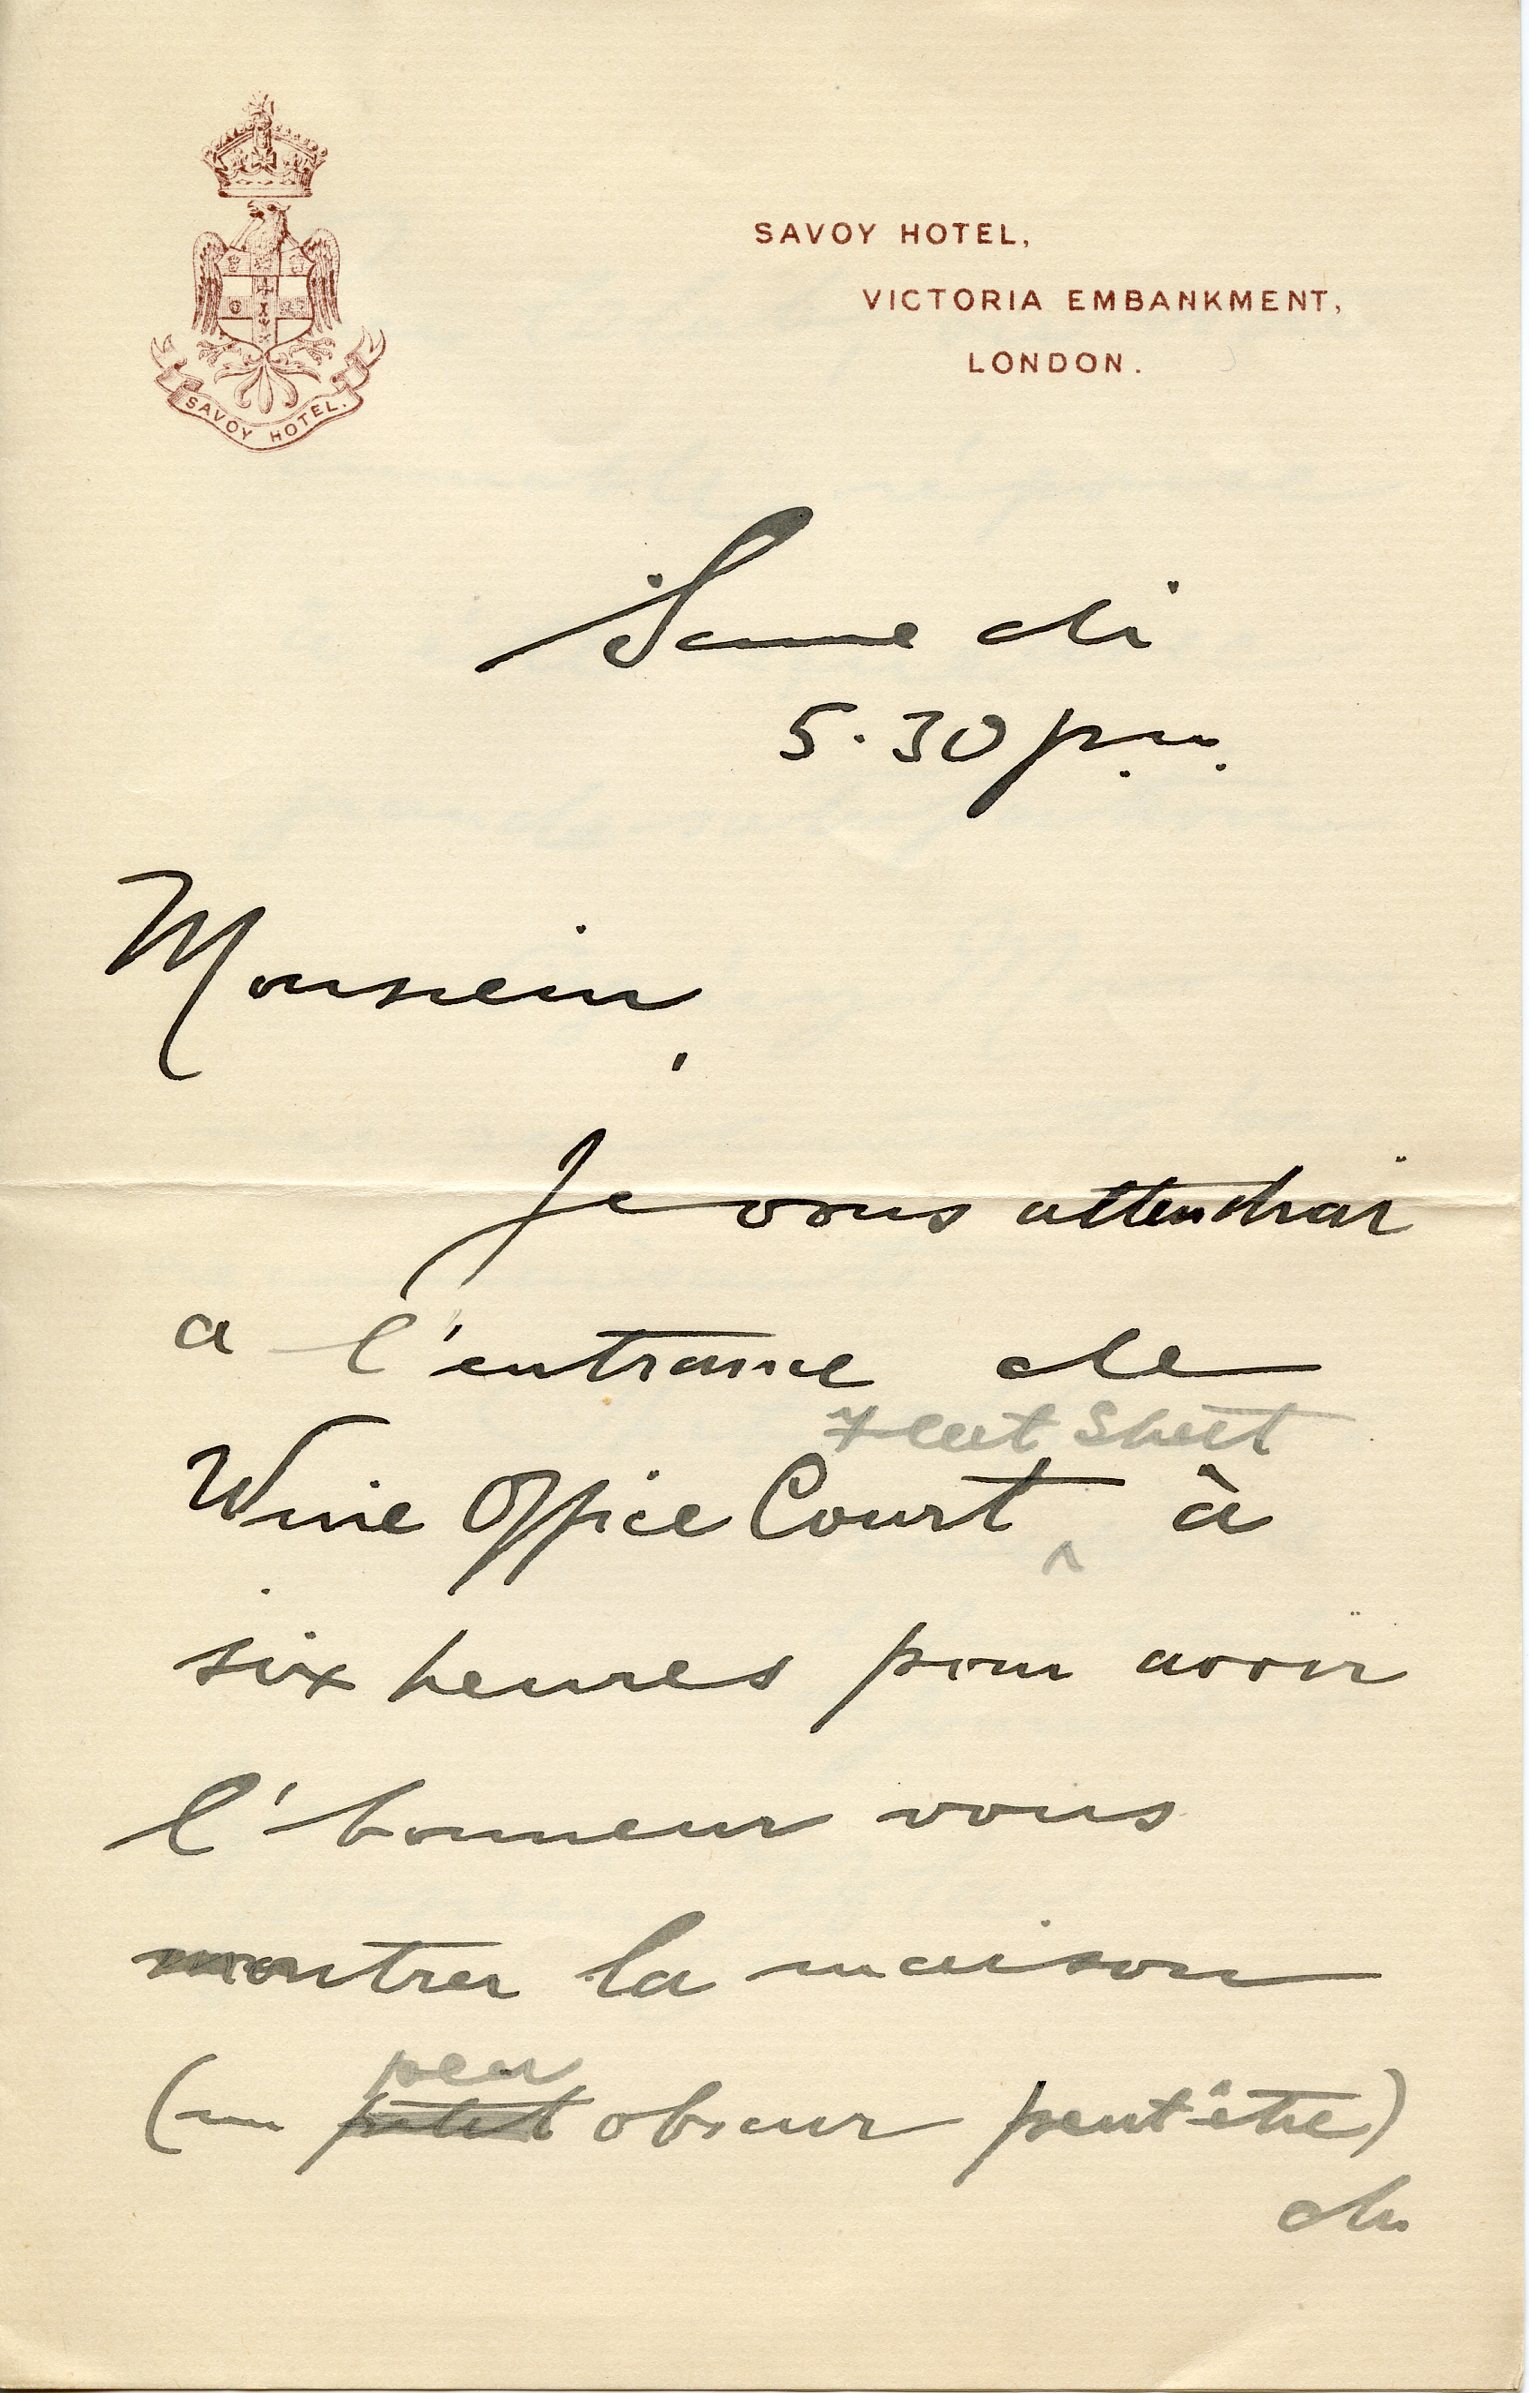 SAVOY HOTEL.
SAVOY HOTEL,
VICTORIA EMBANKMENT,
LONDON.
Samedi
5.30 p.m.
Monsieur,
Je vous attendrai
a l'entrance de
Fleet Street
Wine Office Court ^ à
six heures pour avoir
l'honneur vous
montrer la maison
peu
(un petit obscur peut être)
du